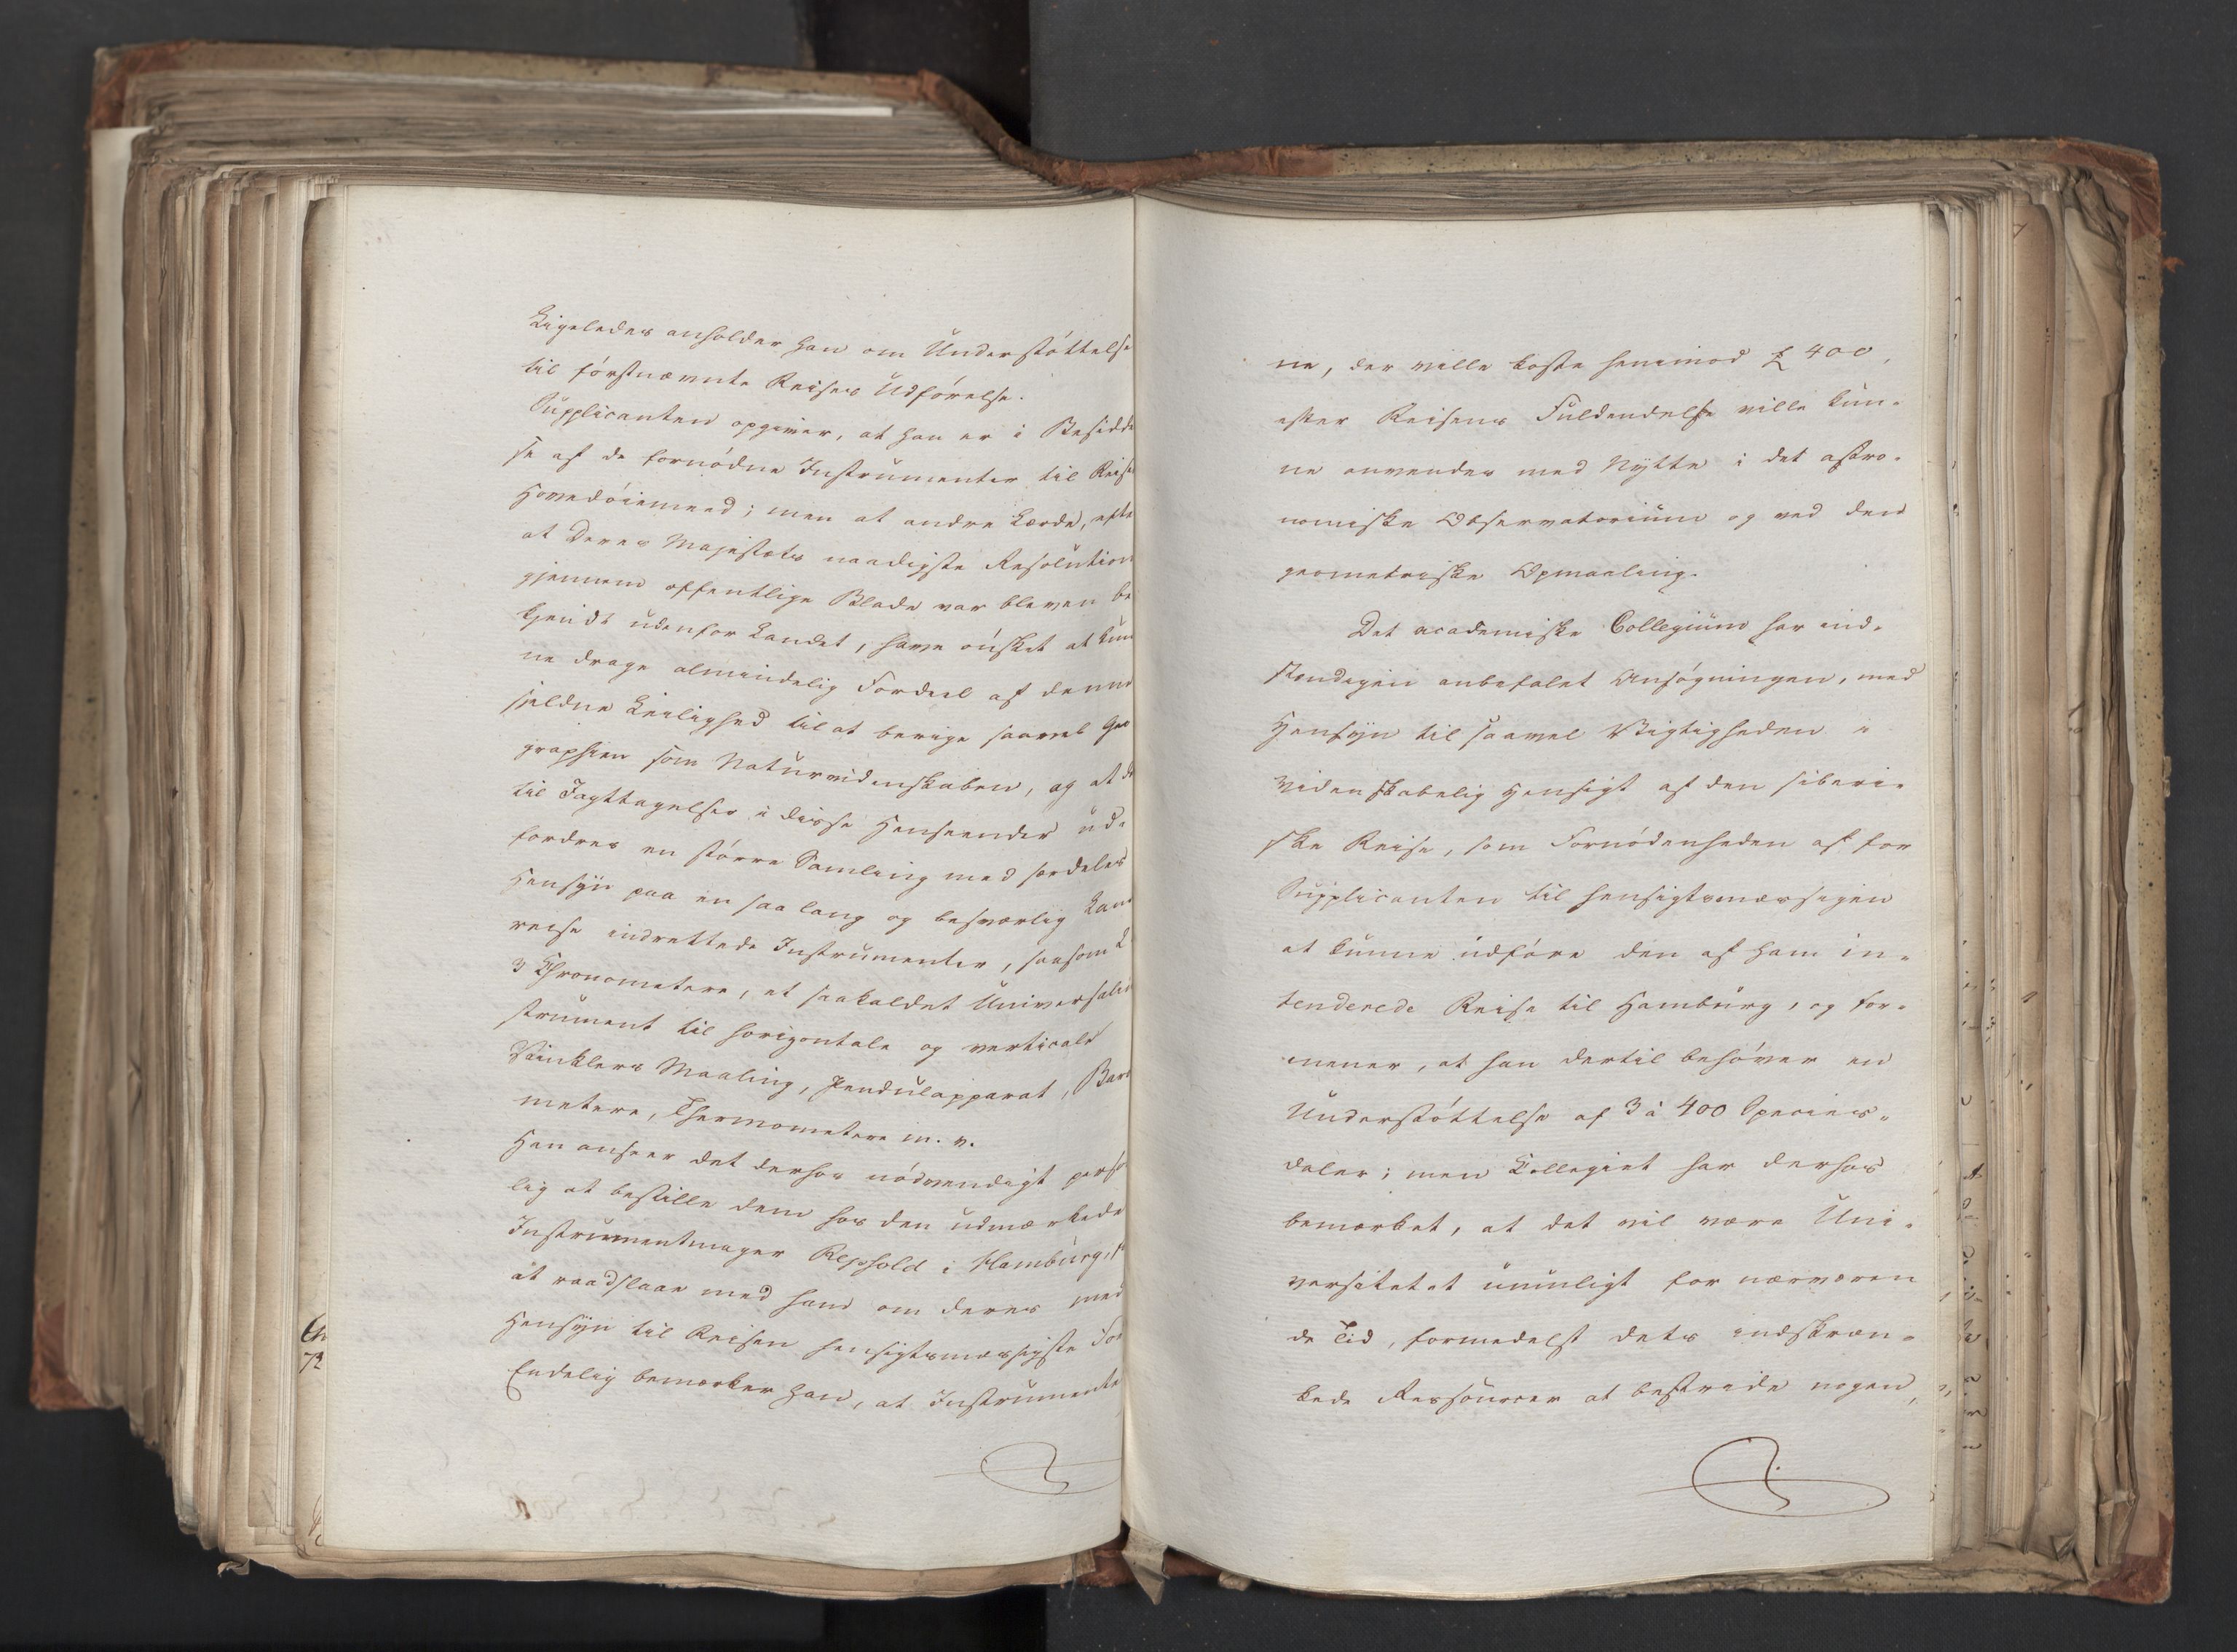 Ligeledes anholder han om Understöttelse
til förstnævnte Reises Udförelse.
Supplicanten opgiver, at han er i Besiddel
se af de fornödne Instrumenter til Reise
Hovedöiemeed; men at andre Lærde, efte
at Deres Majestæts naadigste Resolution
gjennem offentlige Blade var bleven be
kjendt udenfor Landet, have önsket at kun
ne drage almindelig Fordeel af denne
sjeldne Leilighed til at berige saavel Geo
graphien som Naturvidenskaben, og at d
til Iagttagelser i disse Henseender ud-
fordres en större Samling med særdeles
Hensyn paa en saa lang og besværlig Lan
reise indrettede Instrumenter, saasom 2
3 Chronometere, et saakaldet Universalin
strument til horizontale og verticale
Vinklers Maaling, Pendulapparat, Baro
metere, Thermometere m. v.
Han anseer det derhos nödvendigt person
lig at bestille dem hos den udmærkede
Instrumentmager Repsold i Hamburg,
at raadslaae med ham om deres med
Hensyn til Reisen hensigtsmæssigste For
Endelig bemærker han, at Instrumente
ne, der ville koste henimod £ 400,
efter Reisens Fuldendelse ville kun-
ne anvendes med Nytte i det astro-
nomiske Observatorium og ved den
geometriske Opmaaling.
Det academiske Collegium har ind-
stændigen anbefalet Ansögningen, med
Hensyn til saavel Vigtigheden i
videnskabelig Hensigt af den siberi-
ske Reise, som Fornödenheden af for
Supplicanten til hensigtsmæssigen
at kunne udföre den af ham in-
tenderede Reise til Hamburg, og for-
mener, at han dertil behöver en
Understöttelse af 3 à 400 Species-
daler; men Collegiet har derhos
bemærket, at det vil være Uni-
versitetet umuligt for nærværen
de Tid, formedelst dets indskræn-
kede Ressourcer at bestride nogen,